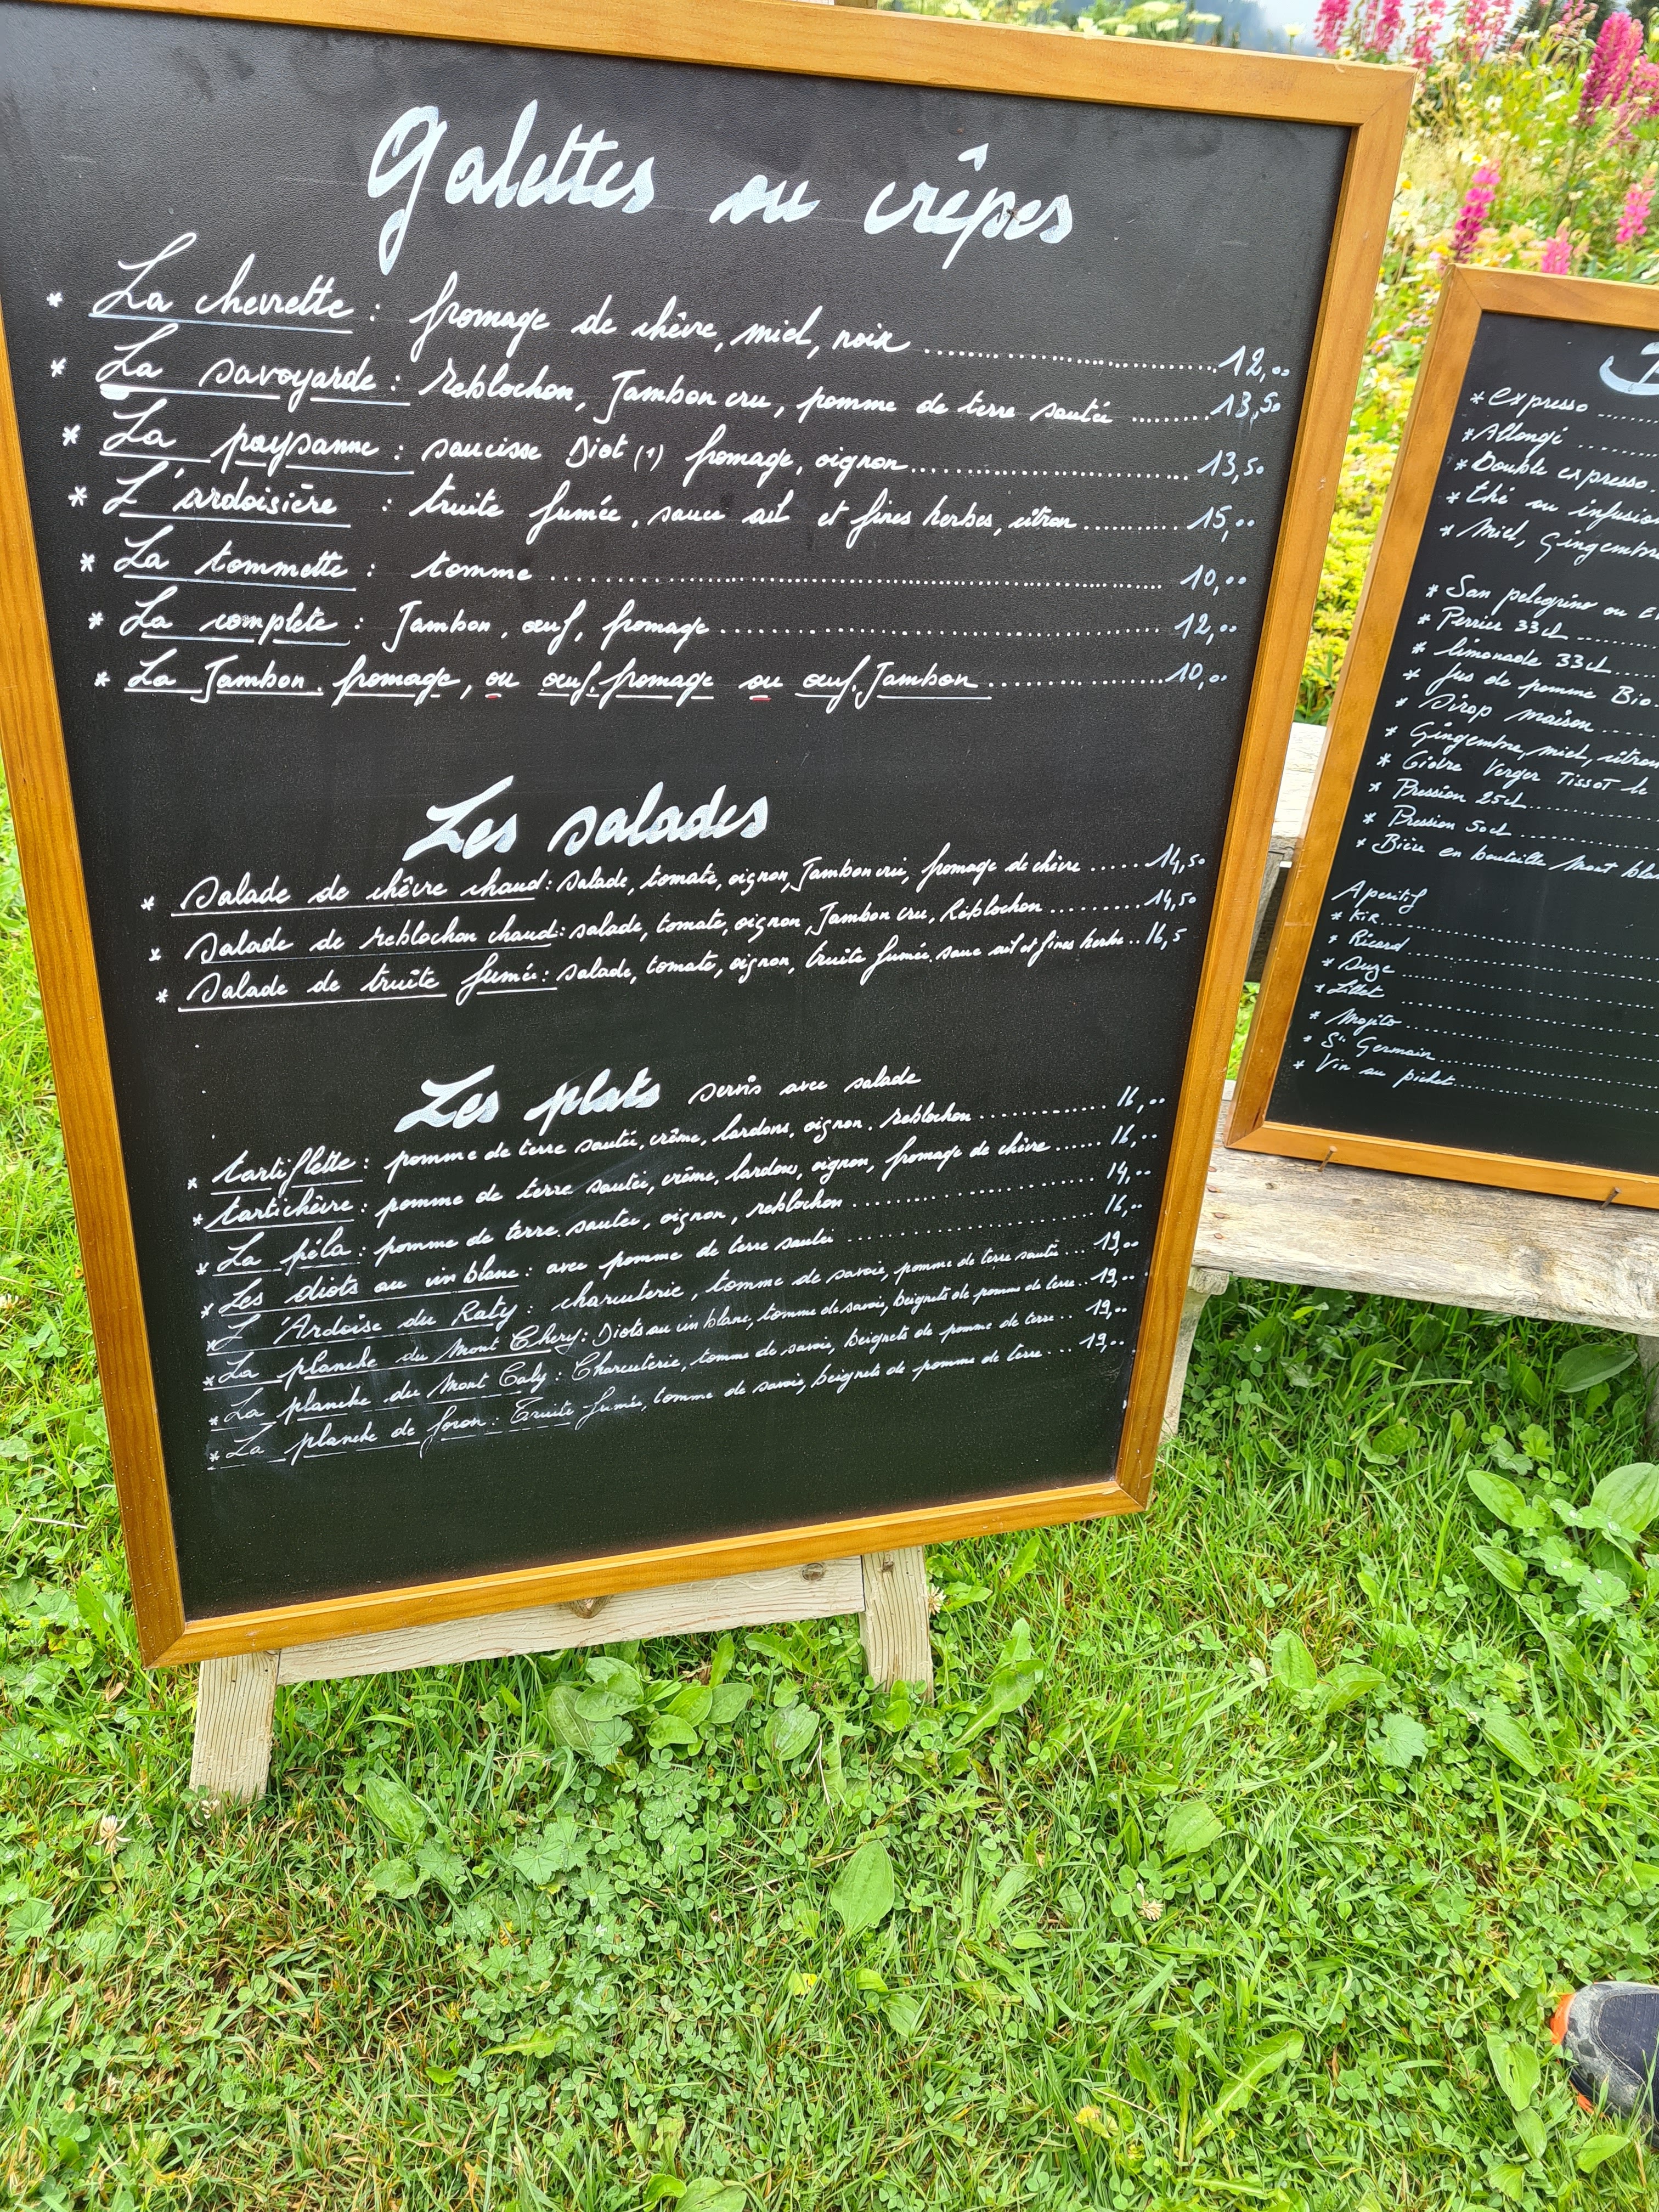 Galettes ou crêpes
* La chevrette : fromage de chèvre, miel, noix ..... 12,00
* La savoyarde : Reblochon, Jambon cru, pomme de terre sautée ..... 13,50
* La paysanne : saucisse Diot (1) fromage, oignon ..... 13,50
* L'ardoisière : truite fumée, sauce ail et fines herbes, citron ..... 15,00
* La tommette : tomme ..... 10,00
* La complète : Jambon, œuf, fromage ..... 12,00
* La Jambon, fromage, ou œuf, fromage ou œuf, Jambon ..... 10,00
Les salades
* Salade de chèvre chaud : Salade, tomate, oignon, Jambon cru, fromage de chèvre ..... 14,50
* Salade de reblochon chaud : salade, tomate, oignon, Jambon cru, Réblochon ..... 14,50
* Salade de truîte fumée : salade, tomate, oignon, truite fumée. sauce ail et fines herbes .. 16,5
Les plats servis avec salade
* tartiflette : pomme de terre sautée, crême, lardons, oignon, reblochon ..... 16,00
* tartichèvre : pomme de terre sautée, crême, lardons, oignon, fromage de chèvre ..... 16,00
* La péla : pomme de terre sautée, oignon, reblochon ..... 14,00
* Les diots au vin blanc : avec pomme de terre sautée ..... 16,00
* L'Ardoise du Raty : charcuterie, tomme de savoie, pomme de terre sautée ... 19,00
* La planche du Mont Chery : Diots au vin blanc, tomme de savoie, beignets de pomme de terre .. 19,00
* La planche du Mont Caly : Charcuterie, tomme de savoie, beignets de pomme de terre ... 19,00
* La planche de foron : Truite fumée, tomme de savoie, beignets de pomme de terre ... 19,00
* expresso .....
* Allongé .....
* Double expresso.
* thé ou infusion
* Miel, Gingembre
* San pelegrino ou
* Perrier 33cl .....
* limonade 33cl .....
* Jus de pomme Bio
* Sirop maison .....
* Gingembre, miel, citron
* Cidre Verger Tissot le
* Pression 25cl .....
* Pression 50cl .....
* Bière en bouteille Mont blanc
Aperitif
* Kir .....
* Ricard .....
* Suze .....
* Lillet .....
* Mojito .....
* St Germain .....
* Vin au pichet .....